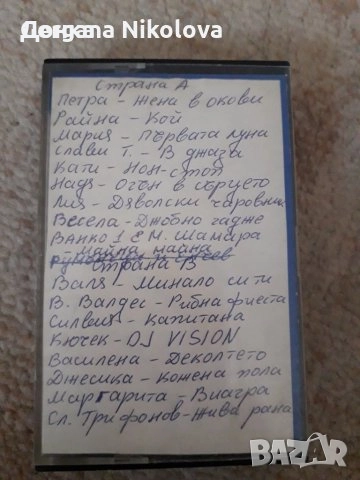 Gergana Nikolova
Страна А
Петра - Жена в окови
Райна - Кой
Мария - Първата луна
Слави Т. - В джаза
Кати - Нон-стоп
Надя - Огън в сърцето
Лиз - Дяволски чаровник
Весела - Джобно гадже
Ванко 1 Е М. Шамара
майна майна
Страна В
Валя - Минало сити
В. Валдес - Рибна фиеста
Силвия - Капитана
Кючек - DJ VISION
Василена - Деколтето
Джесика - Кожена пола
Маргарита - Виагра
Сл. Трифонов - Жива рана
BAZAR
bg